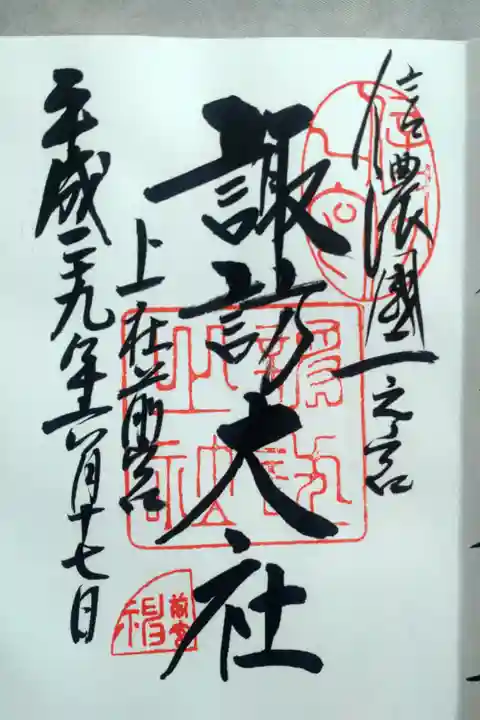 信濃國一之宮
諏訪大社
上社前宮
平成二十九年六月十七日
前宮